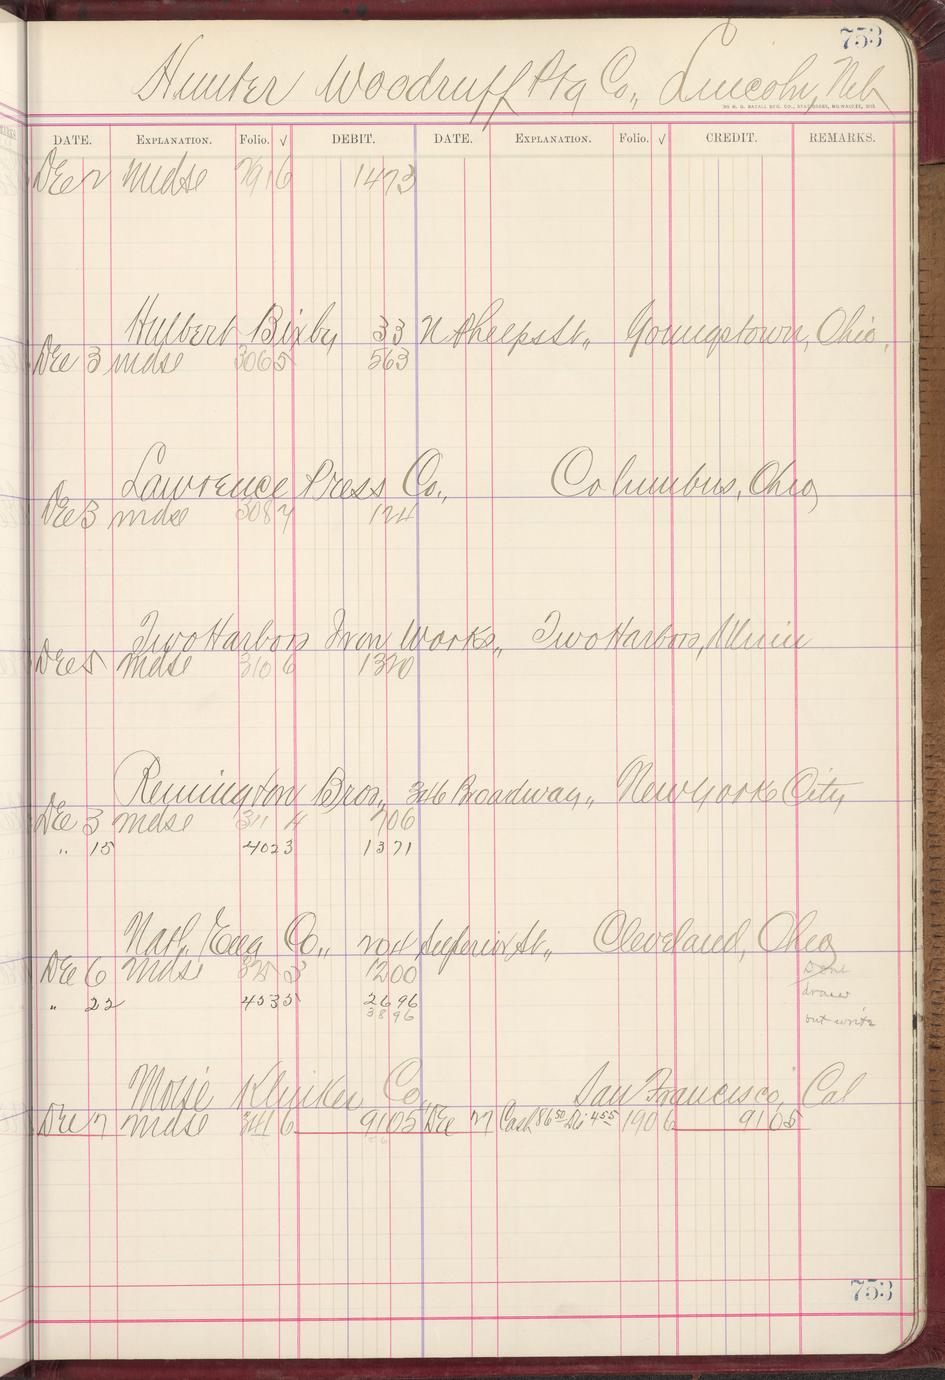 753
Hunter Woodruff Ptg Co., Lincoln, Neb
DATE. EXPLANATION. Folio. √ DEBIT. DATE. EXPLANATION. Folio. √ CREDIT. REMARKS.
Dec 2 mdse 2916 1473
Hulbert Bixby 33 N Phelps St., Youngstown, Ohio.
Dec 3 mdse 3065 563
Lawrence Press Co., Columbus, Ohio
Dec 3 mdse 3087 124
Two Harbors Iron Works., Two Harbors, Minn
Dec 5 mdse 3106 1320
Remington Bros., 346 Broadway., New York City
Dec 3 mdse 311 4 706
" 15 4023 1371
Natl. Eng Co., 204 Superior St., Cleveland, Ohio
Dec 6 mdse 325 3 1200
" 22 4535 2696
3896
Dont
draw
but write
Moise Klinker Co., San Francisco, Cal
Dec 7 mdse 341 6 9105 Dec 27 Cash 86 50 Dis 4 55 190 6 9105
753